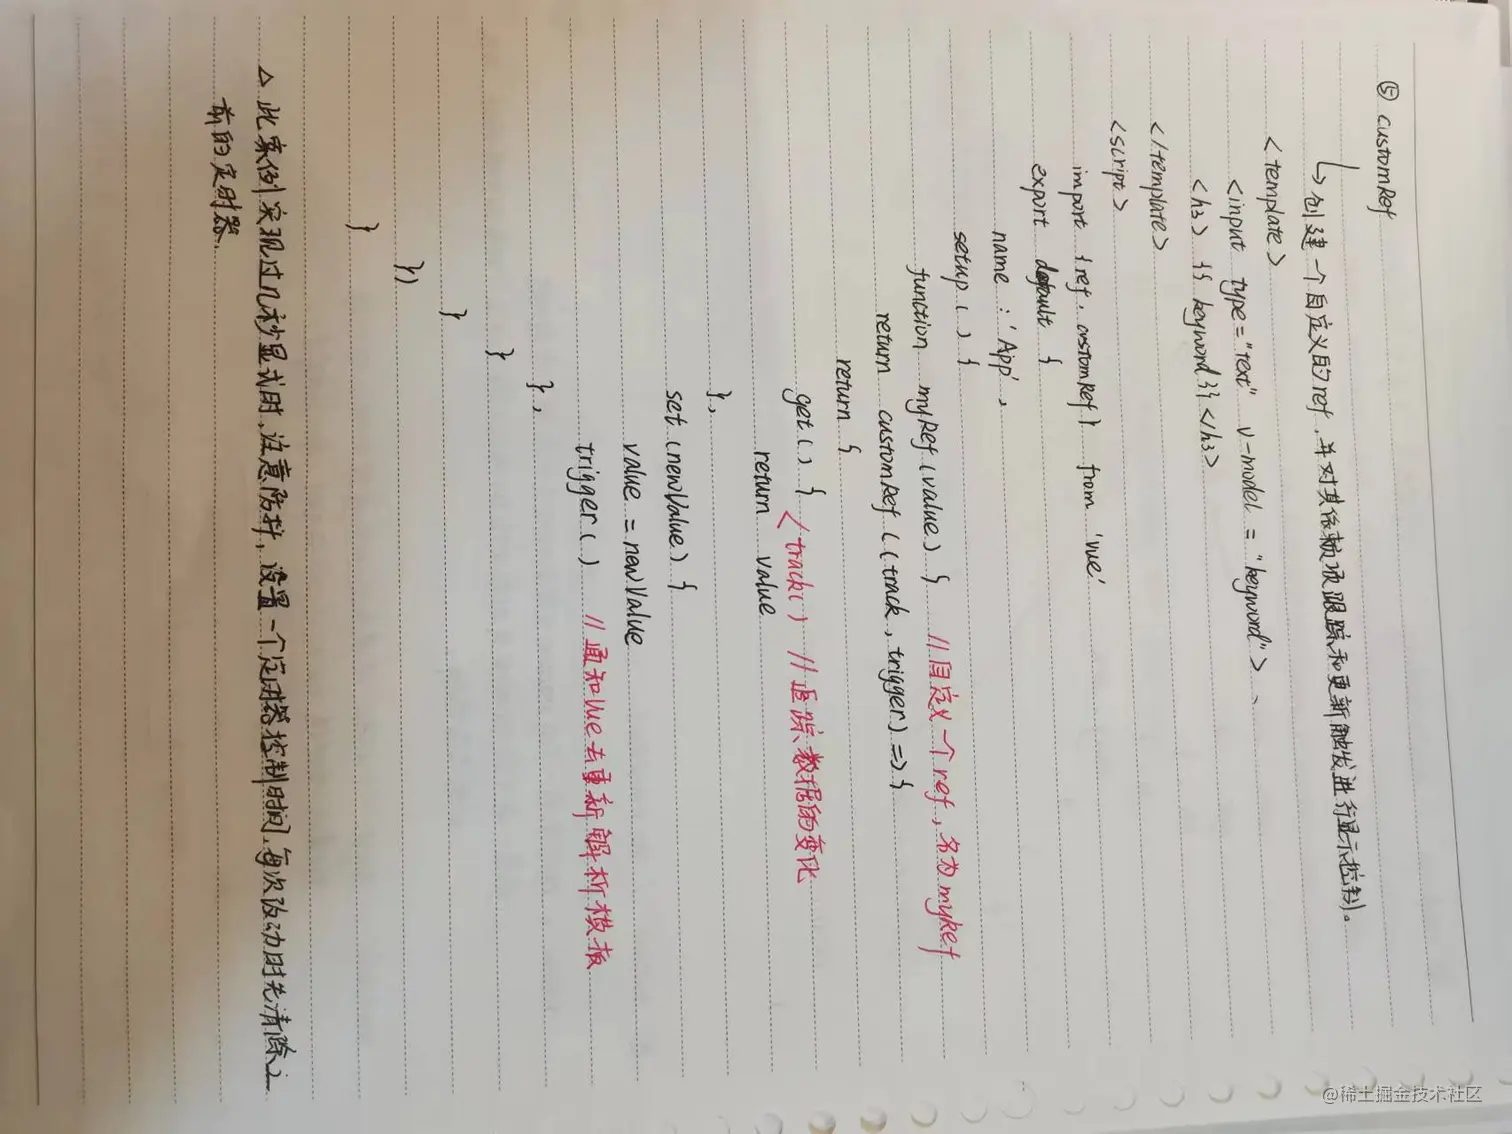 ⑤ customRef
↳ 创建一个自定义的ref，并对其依赖项跟踪和更新触发进行显示控制。
<template>
<input type="text" v-model = "keyword">
<h3> {{ keyword }} </h3>
</template>
<script>
import {ref, customRef} from 'vue'
export default {
name : 'App',
setup ( ) {
function myRef (value) { //自定义一个ref，名为myRef
return customRef ((track, trigger) => {
return {
get ( ) { track( ) //追踪数据的变化
return value
},
set (newValue) {
value = newValue
trigger ( ) //通知Vue去重新解析模板
},
}
}
})
}
△ 此案例实现过几秒显式时，注意防抖，设置一个定时器控制时间，每次改动时先清除之
前的定时器.
@稀土掘金技术社区